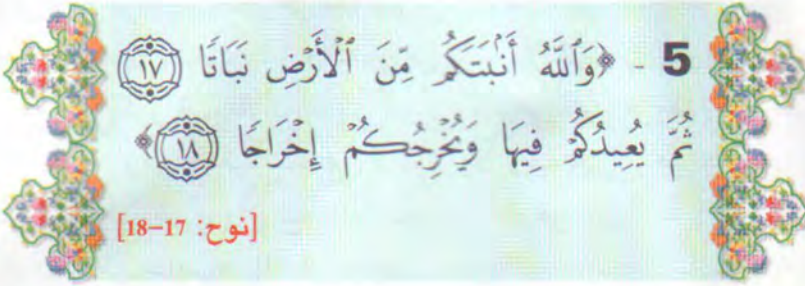 5 - ﴿وَٱللَّهُ أَنۢبَتَكُم مِّنَ ٱلْأَرْضِ نَبَاتًا ١٧
ثُمَّ يُعِيدُكُمْ فِيهَا وَيُخْرِجُكُمْ إِخْرَاجًا ١٨﴾
[نوح: 17-18]